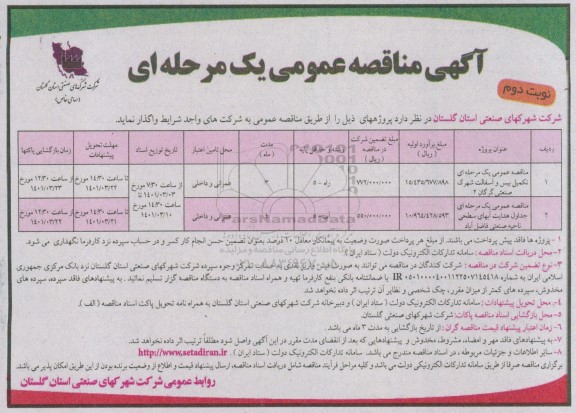 شرکت شهرکهای صنعتی استان گلستان
(سهامی خاص)
آگهی مناقصه عمومی یک مرحله ای
نوبت دوم
شرکت شهرکهای صنعتی استان گلستان در نظر دارد پروژههای ذیل را از طریق مناقصه عمومی به شرکت های واجد شرایط واگذار نماید.
ردیف عنوان پروژه مبلغ برآورد اولیه (ریال) مبلغ تضمین شرکت در مناقصه (ریال) مدت (ماه) محل تامین اعتبار تاریخ توزیع اسناد مهلت تحویل پیشنهادات زمان بازگشایی پاکتها
۱ مناقصه عمومی یک مرحله ای تکمیل بیس و آسفالت شهرک صنعتی گرگان ۲ ۱۵/۴۳۵/۳۷۷/۸۹۸ ۷۷۲/۰۰۰/۰۰۰ راه - ۵ ۳ عمرانی و داخلی از ساعت ۷/۳۰ مورخ ۱۴۰۱/۰۳/۰۳ تا ساعت ۱۴/۳۰ مورخ ۱۴۰۱/۰۳/۱۰ تا ساعت ۱۴/۳۰ مورخ ۱۴۰۱/۰۳/۲۲ از ساعت ۱۲/۳۰ مورخ ۱۴۰۱/۰۳/۲۳
۲ مناقصه عمومی یک مرحله ای جداول هدایت آبهای سطحی ناحیه صنعتی فاضل آباد ۱۰/۹۶۴/۴۲۸/۵۹۳ ۵۵۰/۰۰۰/۰۰۰ عمرانی و داخلی تا ساعت ۱۴/۳۰ مورخ ۱۴۰۱/۰۳/۲۱ از ساعت ۱۲/۳۰ مورخ ۱۴۰۱/۰۳/۲۲
ParsNamadData
۱ - پروژه ها فاقد پیش پرداخت می باشند. از مبلغ هر پرداخت صورت وضعیت به پیمانکار معادل ۲۰ درصد بعنوان تضمین حسن انجام کار کسر و در حساب سپرده نزد کارفرما نگهداری می شود.
۲- محل دریافت اسناد مناقصه: سامانه تدارکات الکترونیک دولت (ستاد ایران)
۳- نوع تضمین شرکت در مناقصه: شرکت کنندگان در مناقصه می توانند به صورت فیش واریز نقدی به حساب تمرکز وجوه سپرده شرکت شهرکهای صنعتی استان گلستان نزد بانک مرکزی جمهوری
اسلامی ایران به شماره یا ضمانتنامه بانکی بنفع کارفرما تهیه و همراه اسناد مناقصه به دستگاه مناقصه گزار تسلیم نمایند. به پیشنهادهای فاقد سپرده، سپرده های
مخدوش، سپرده های کمتر از میزان مقرر، چک شخصی و نظایر آن ترتیب اثر داده نخواهد شد.
۴- محل تحویل پیشنهادات: سامانه تدارکات الکترونیک دولت (ستاد ایران) و دبیرخانه شرکت شهرکهای صنعتی استان گلستان به همراه نامه تحویل پاکت اسناد مناقصه (الف).
۵- محل بازگشایی اسناد مناقصه پاکات: شرکت شهرکهای صنعتی گلستان.
۶- زمان اعتبار پیشنهاد قیمت مناقصه گران: از تاریخ بازگشایی به مدت ۳ ماه می باشد.
۷- به پیشنهادهای فاقد مهر و امضاء، مشروط، مخدوش و پیشنهادهایی که بعد از انقضای مدت مقرر در این آگهی واصل شود مطلقاً ترتیب اثر داده نخواهد شد.
۸- سایر اطلاعات و جزئیات مربوطه، در اسناد مناقصه مندرج می باشد. سامانه تدارکات الکترونیک دولت (ستاد ایران). http://www.setadiran.ir
برگزاری مناقصه صرفا از طریق سامانه تدارکات الکترونیکی دولت می باشد و کلیه مراحل فرآیند مناقصه شامل دریافت اسناد مناقصه، ارسال پیشنهاد قیمت و اطلاع از وضعیت برنده بودن از این طریق امکان پذیر می باشد.
روابط عمومی شرکت شهرکهای صنعتی استان گلستان